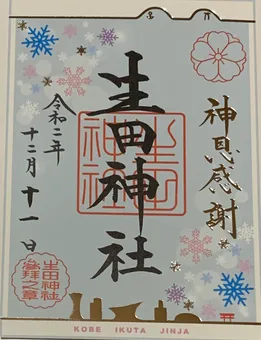 神恩感謝
生田神社
令和二年
十二月十一日
生田神社
生田神社
参拝之章
KOBE IKUTA JINJA